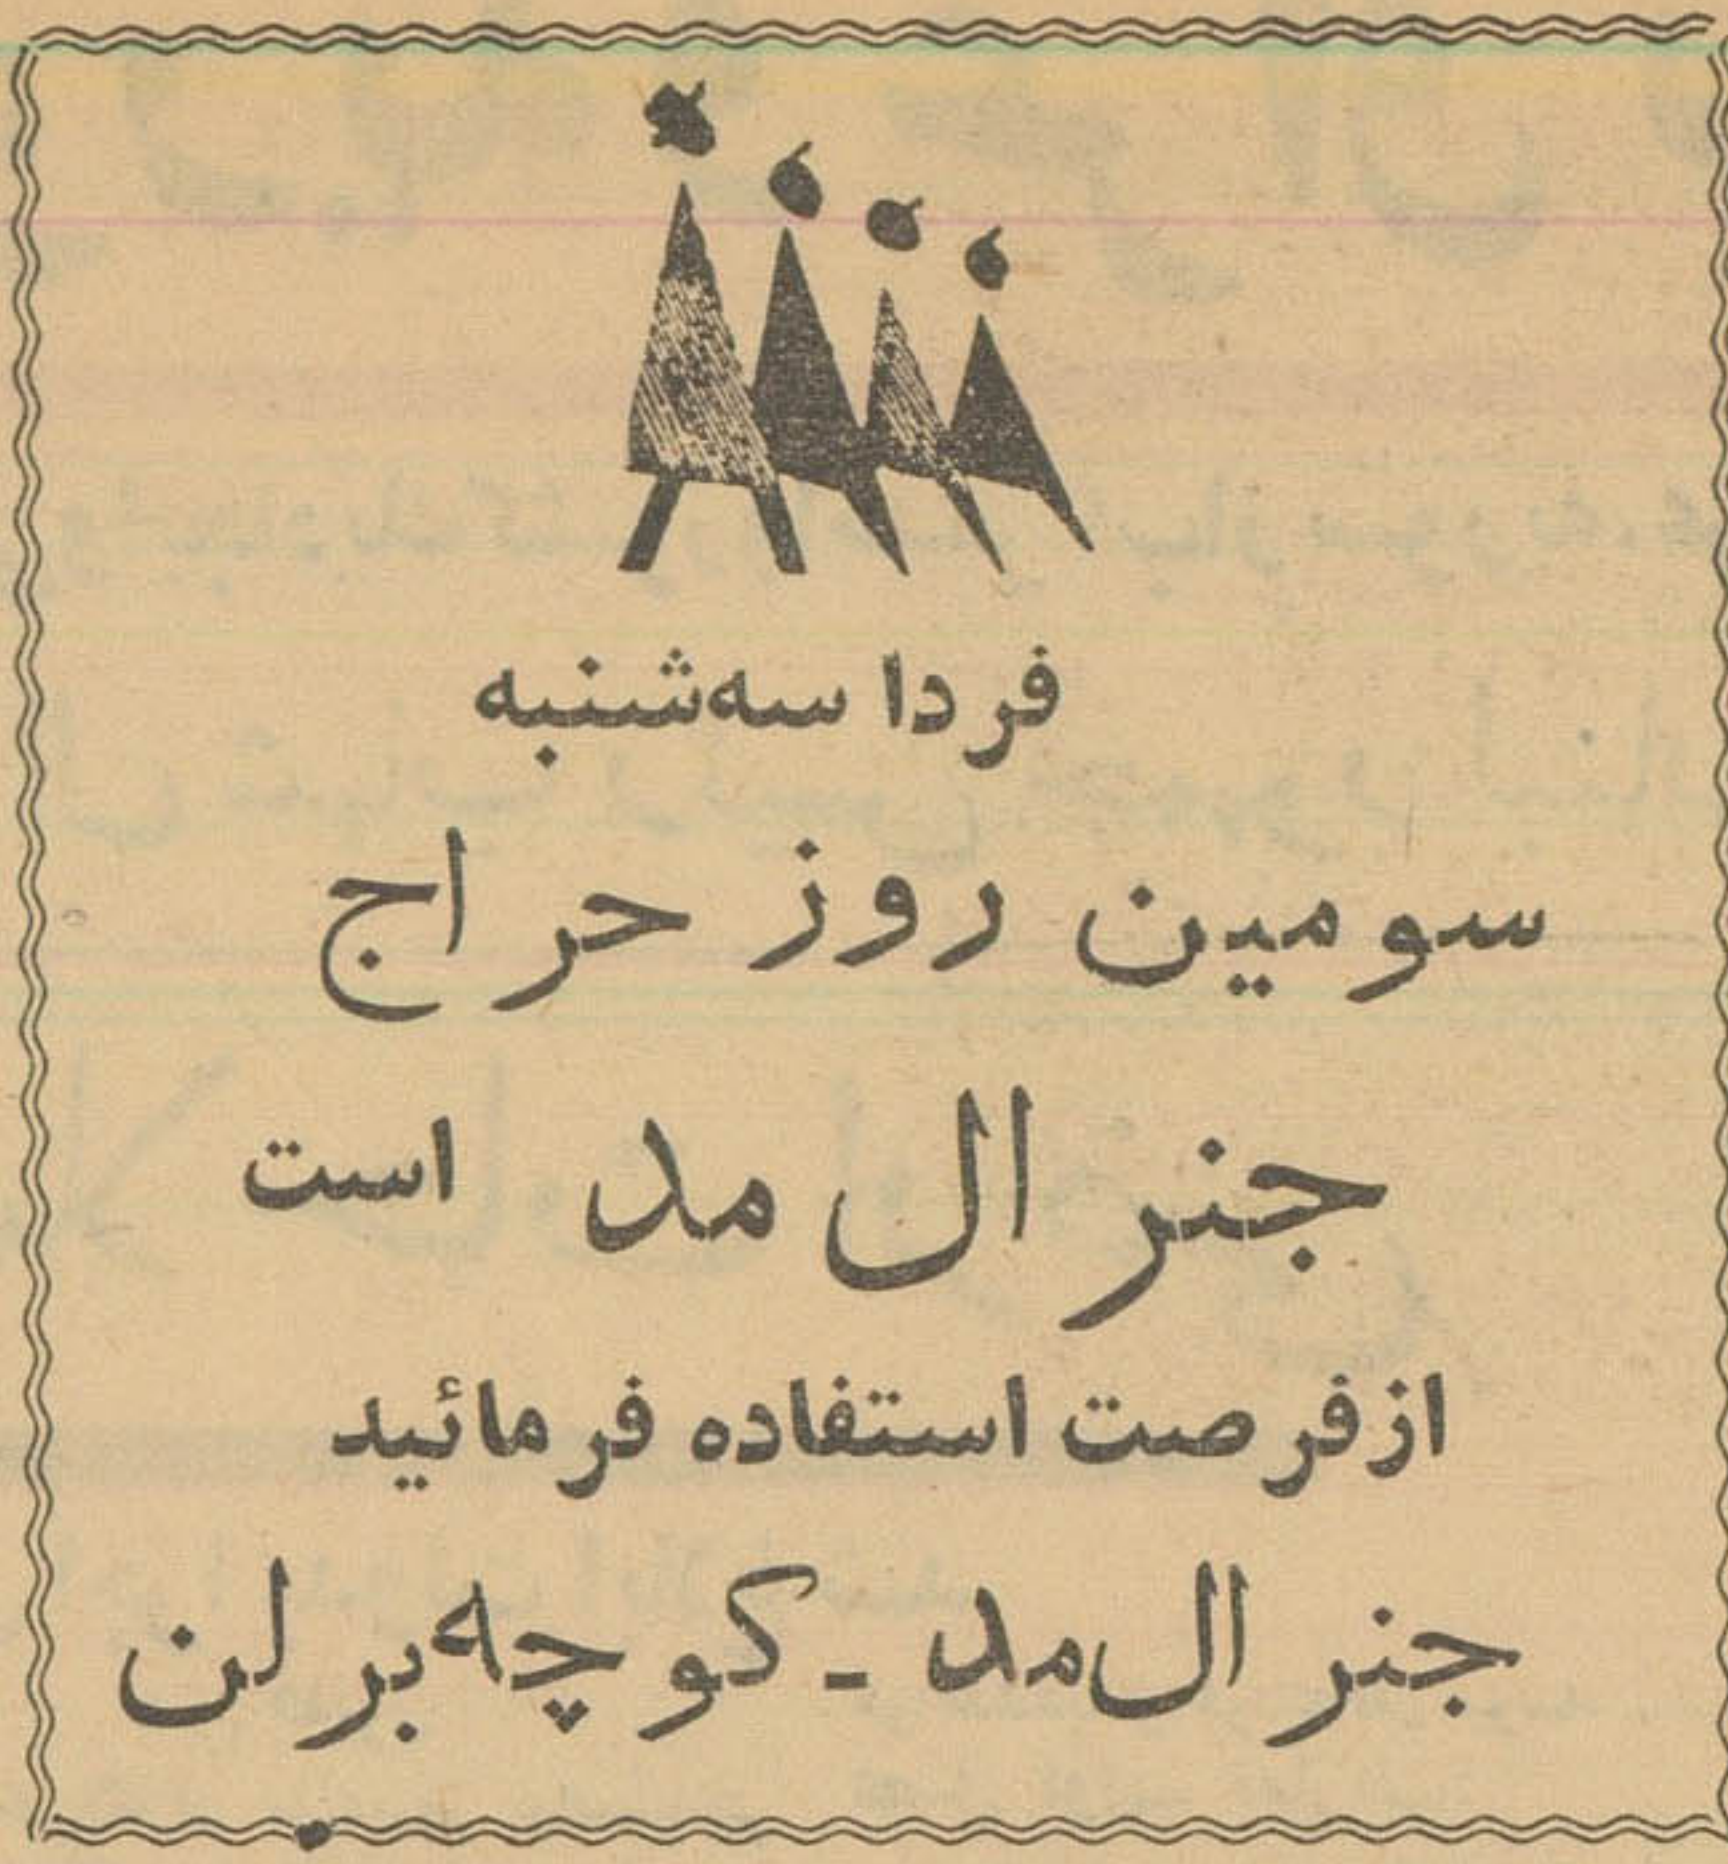 فردا سه‌شنبه
سومین روز حراج
جنرال مد است
از فرصت استفاده فرمائید
جنرال مد - کوچه برلن